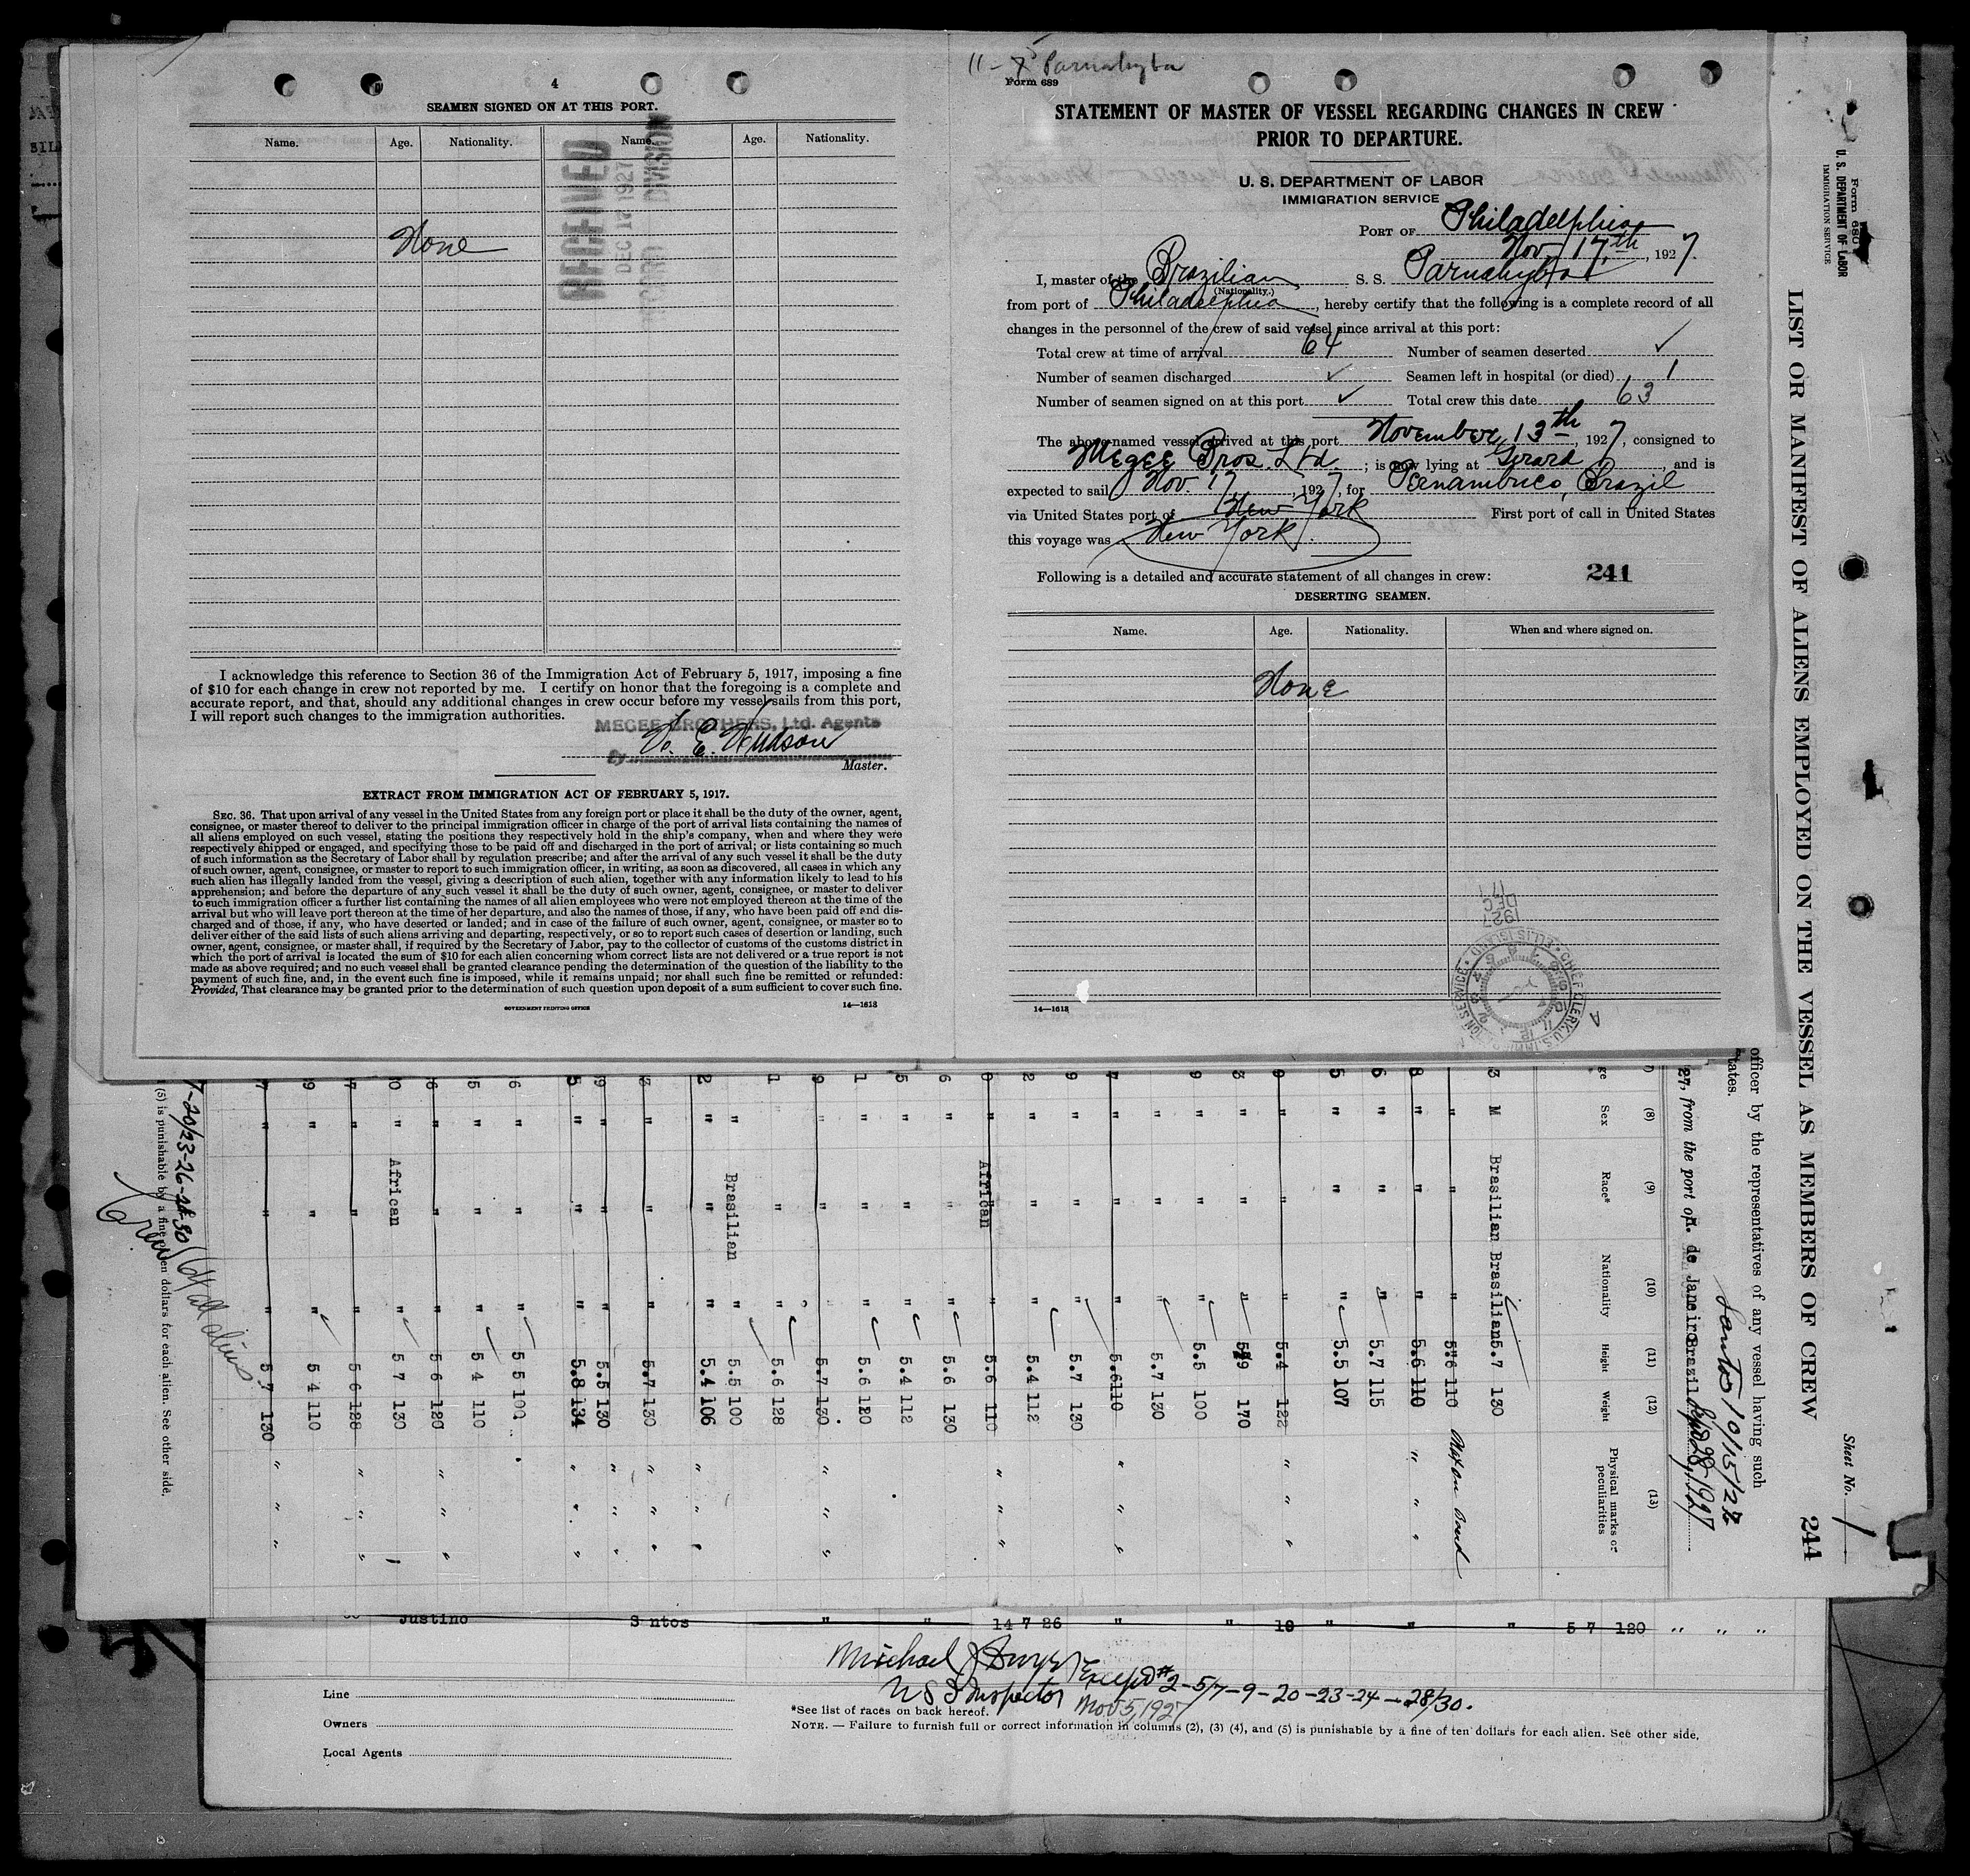 4
SEAMEN SIGNED ON AT THIS PORT.
Name. Age. Nationality. Name. Age. Nationality.
RECEIVED
DEC 14 1927
RECORD DIVISION
None
I acknowledge this reference to Section 36 of the Immigration Act of February 5, 1917, imposing a fine
of $10 for each change in crew not reported by me. I certify on honor that the foregoing is a complete and
accurate report, and that, should any additional changes in crew occur before my vessel sails from this port,
I will report such changes to the immigration authorities.
MEGEE BROTHERS, Ltd. Agents
By
Master.
EXTRACT FROM IMMIGRATION ACT OF FEBRUARY 5, 1917.
SEC. 36. That upon arrival of any vessel in the United States from any foreign port or place it shall be the duty of the owner, agent,
consignee, or master thereof to deliver to the principal immigration officer in charge of the port of arrival lists containing the names of
all aliens employed on such vessel, stating the positions they respectively hold in the ship's company, when and where they were
respectively shipped or engaged, and specifying those to be paid off and discharged in the port of arrival; or lists containing so much
of such information as the Secretary of Labor shall by regulation prescribe; and after the arrival of any such vessel it shall be the duty
of such owner, agent, consignee, or master to report to such immigration officer, in writing, as soon as discovered, all cases in which any
such alien has illegally landed from the vessel, giving a description of such alien, together with any information likely to lead to his
apprehension; and before the departure of any such vessel it shall be the duty of such owner, agent, consignee, or master to deliver
to such immigration officer a further list containing the names of all alien employees who were not employed thereon at the time of the
arrival but who will leave port thereon at the time of her departure, and also the names of those, if any, who have been paid off and dis-
charged and of those, if any, who have deserted or landed; and in case of the failure of such owner, agent, consignee, or master so to
deliver either of the said lists of such aliens arriving and departing, respectively, or so to report such cases of desertion or landing, such
owner, agent, consignee, or master shall, if required by the Secretary of Labor, pay to the collector of customs of the customs district in
which the port of arrival is located the sum of $10 for each alien concerning whom correct lists are not delivered or a true report is not
made as above required; and no such vessel shall be granted clearance pending the determination of the question of the liability to the
payment of such fine, and, in the event such fine is imposed, while it remains unpaid; nor shall such fine be remitted or refunded:
Provided, That clearance may be granted prior to the determination of such question upon deposit of a sum sufficient to cover such fine.
GOVERNMENT PRINTING OFFICE 14—1618
Parnahyba
Form 689
STATEMENT OF MASTER OF VESSEL REGARDING CHANGES IN CREW
PRIOR TO DEPARTURE.
U. S. DEPARTMENT OF LABOR
IMMIGRATION SERVICE
PORT OF Philadelphia
Nov. 17th, 1927.
I, master of the Brazilian S. S. Parnahyba
(Nationality.)
from port of Philadelphia, hereby certify that the following is a complete record of all
changes in the personnel of the crew of said vessel since arrival at this port:
Total crew at time of arrival 64 Number of seamen deserted ✓
Number of seamen discharged ✓ Seamen left in hospital (or died) 1
Number of seamen signed on at this port ✓ Total crew this date 63
The above-named vessel arrived at this port November 13th, 1927, consigned to
Megee Bros. Ltd. ; is now lying at Girard, and is
expected to sail Nov. 17, 1927, for Pernambuco, Brazil
via United States port of New York First port of call in United States
this voyage was New York.
Following is a detailed and accurate statement of all changes in crew: 241
DESERTING SEAMEN.
Name. Age. Nationality. When and where signed on.
None
1927
DEC
17
CHIEF CLERK, U.S. IMMIGRATION SERVICE • ELLIS ISLAND
14—1618
Form 680
U. S. DEPARTMENT OF LABOR
IMMIGRATION SERVICE
LIST OR MANIFEST OF ALIENS EMPLOYED ON THE VESSEL AS MEMBERS OF CREW 244
Sheet No. 1
officer by the representatives of any vessel having such
Santos 10/15/27
27, from the port of de Janeiro Brazil
(8) (9) (10) (11) (12) (13)
Sex Race* Nationality Height Weight Physical marks or peculiarities
3 M Brasilian Brasilian 5.7 130
" " " 5 6 110
8 " " " 5.6 110 " " "
6 " " " 5.7 115
5 " " " 5.5 107
9 " " " 5.4 122 " " "
3 " " " 170
9 " " " 5.5 100
" " " 5.7 130
7 " " " 5.6 110 " " "
9 " " " 5.7 130
2 " " " 5.4 112
" African " 5.6 110 " " "
6 " " " 5.6 130
5 " " " 5.4 112
1 " " " 5.6 120
9 " " " 5.7 130 " " "
1 " " " 5.6 128
" Brasilian " 5.5 100
2 " " " 5.4 106 " " "
3 " " " 5.7 130 " " "
9 " " " 5.5 130 " " "
5 " " " 5.8 134 " " "
6 " " " 5 5 100
5 " " " 5 4 110
6 " " " 5 6 120 " " "
0 " African " 5 7 130
7 " " " 5 6 128 " " "
9 " " " 5 4 110
7 " " " 5 7 130 " " "
(64 all aliens
Crew
(5) is punishable by a fine of ten dollars for each alien. See other side.
Justino S ntos " " 14 7 26 " " 19 " " " 5 7 120 " " "
Michael J Dwyer Except # 2-5/7-9-20-23-24-28/30.
U S I Inspector Nov 5, 1927
Line
*See list of races on back hereof.
Owners
NOTE. — Failure to furnish full or correct information in columns (2), (3) (4), and (5) is punishable by a fine of ten dollars for each alien. See other side,
Local Agents